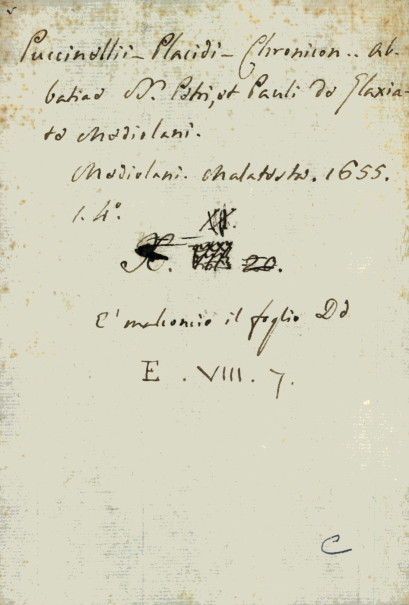 Puccinellii - Placidi - Chronicon .. Ab-
batiae SS. Petri, et Pauli de Glaxia-
te Mediolani.
Mediolani. Malatesta. 1655.
1. 4°.
XX.
X. 20.
E' malconcio il foglio Dd
E . VIII . 7.
C